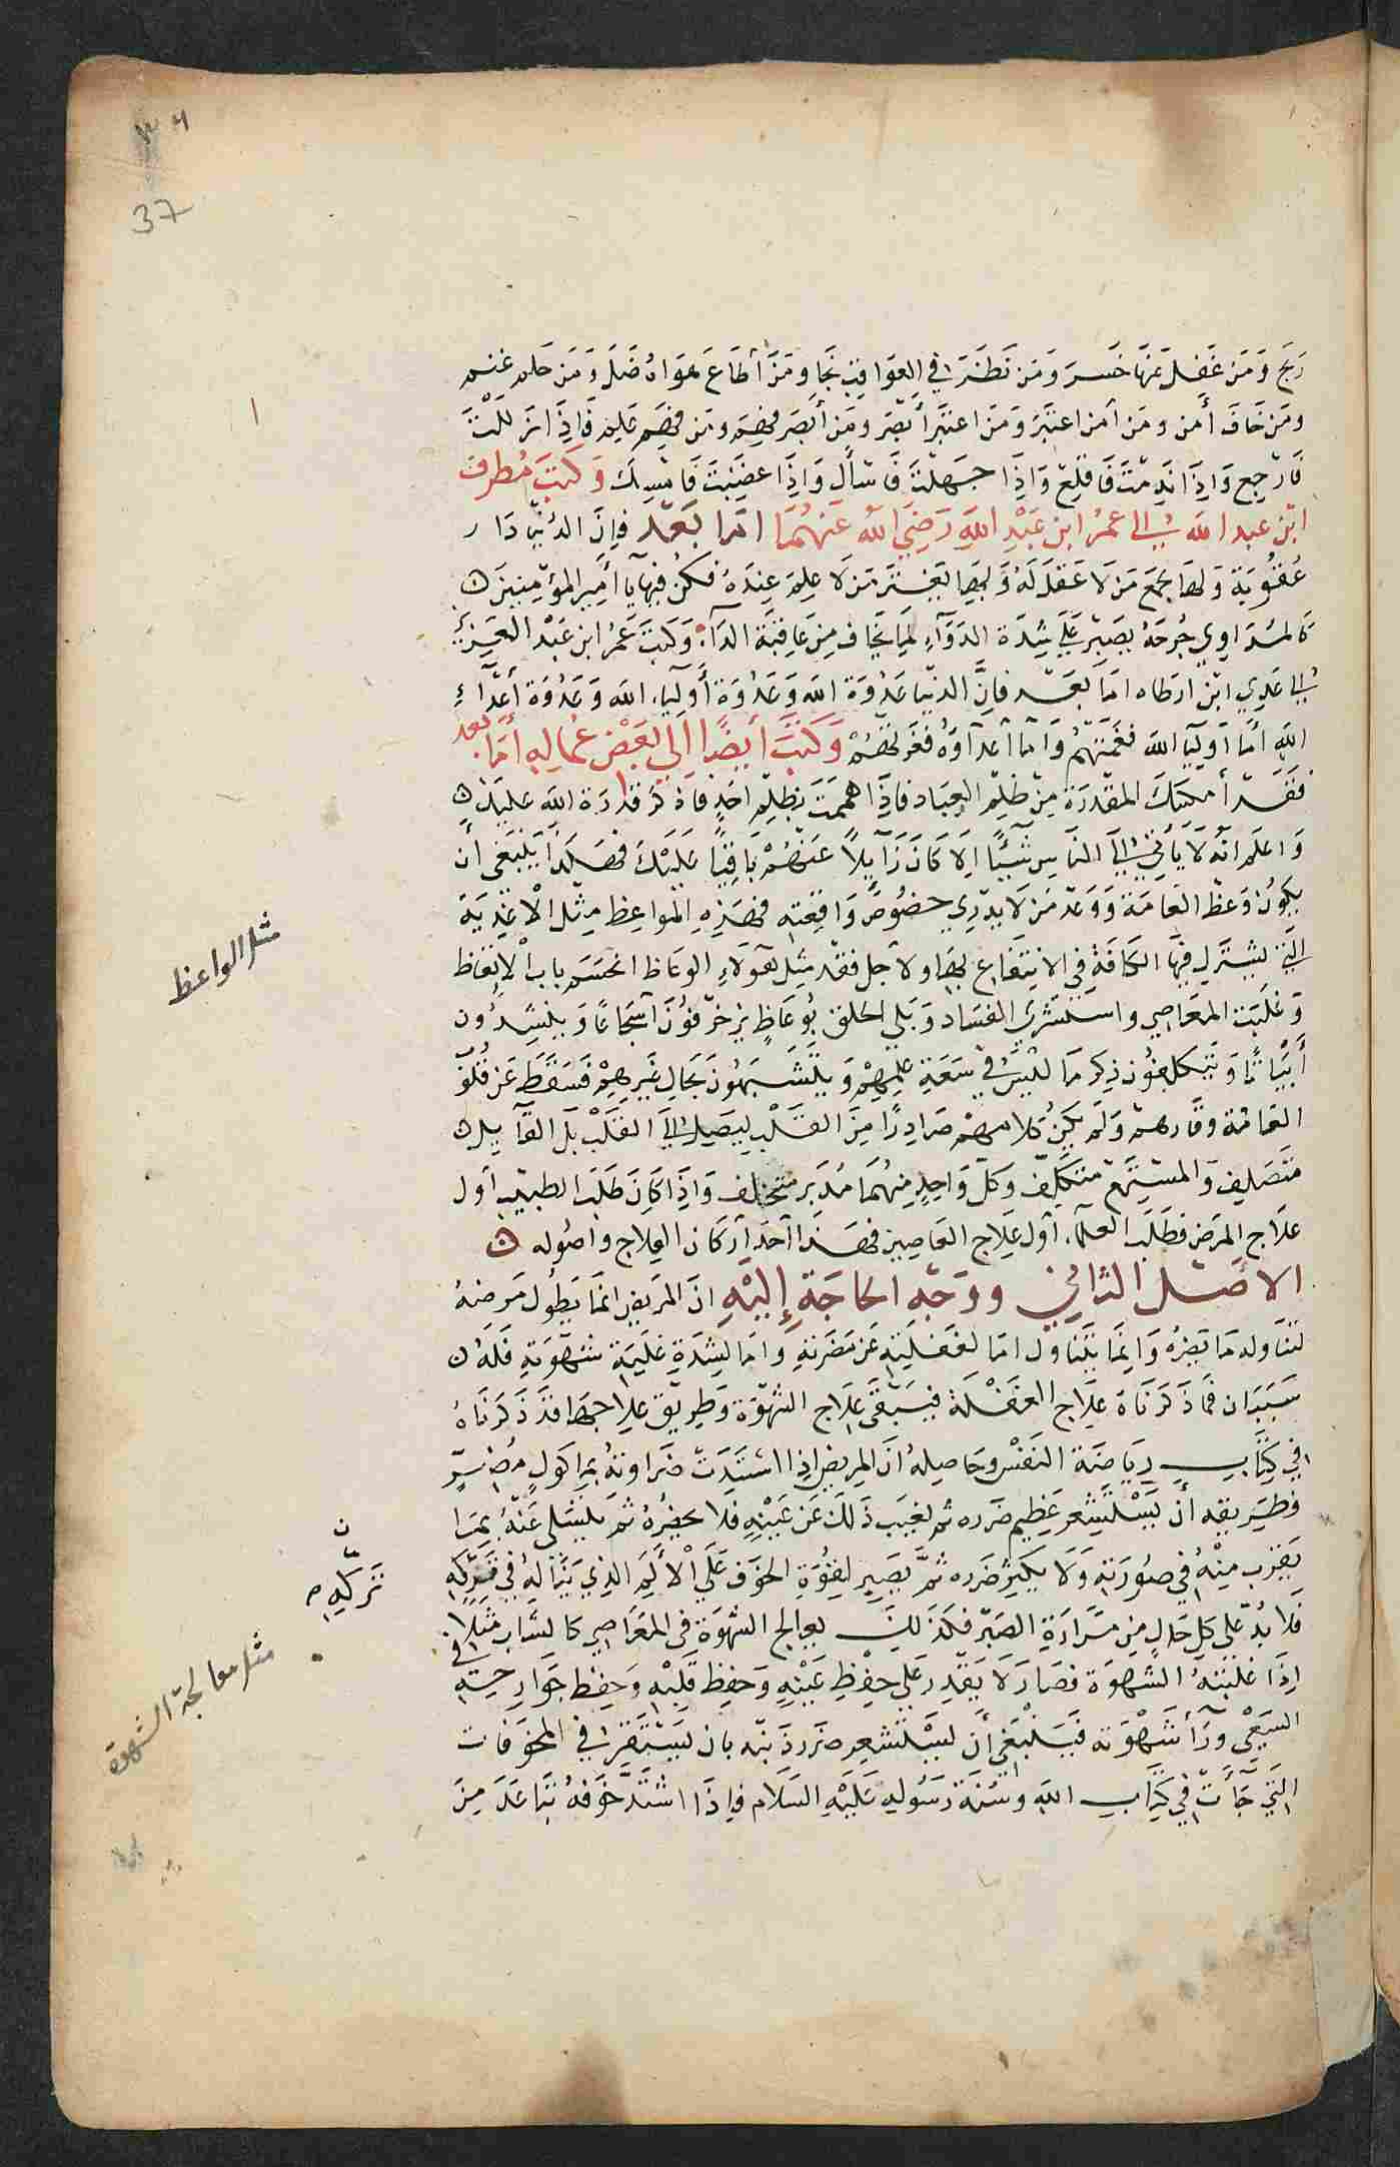 37
ربح ومن غفل عنها خسر ومن نظر في العواقب نجا ومن أطاع هواه ضل ومن حلم غنم
ومن خاف أمن ومن أمن اعتبر ومن اعتبر أبصر ومن أبصر فهم ومن فهم علم فإذا زللت
فارجع وإذا ندمت فاقلع وإذا جهلت فاسأل وإذا غضبت فامسك وكتب مطرف
ابن عبد الله إلى عمر ابن عبد الله رضي الله عنهما اما بعد فإن الدنيا دار
عقوبة ولها يجمع من لا عقل له وبها يغتر من لا علم عنده فكن فيها يا أمير المؤمنين
كالمداوي جرحه يصبر على شدة الدواء لما يخاف من عاقبة الداء وكتب عمر ابن عبد العزيز
إلى عدي ابن ارطاه اما بعد فان الدنيا عدوة الله وعدوة أولياء الله وعدوة أعداء
الله أما أوليا الله فغمتهم وأما أعداؤه فغرتهم وكتب أيضا إلى بعض عماله أما بعد
فقد أمكنتك المقدرة من ظلم العباد فإذا هممت بظلم احد فاذكر قدرة الله عليك
واعلم انه لا يأتي إلى الناس شيئا الا كان زايلا عنهم باقيا عليك فهكذا ينبغي أن
يكون وعظ العامة ووعظ من لا يدري خصوص واقعته فهذه المواعظ مثل الاغذية
التي يشترك فيها الكافة في الانتفاع بها ولاجل فقد مثل هؤلاء الوعاظ انحسم باب الاتعاظ
وغلبت المعاصي واستشرى الفساد وبلي الخلق بوعاظ يزخرفون أسجاعا وينشدون
أبياتا ويتكلفون ذكر ما ليس في سعة علمهم ويتشبهون بحال غيرهم فسقط عن قلوب
العامة وقارهم ولم يكن كلامهم صادرا من القلب ليصل إلى القلب بل القايل
متصلف والمستمع متكلف وكل واحد منهما مدبر متخلف وإذا كان طلب الطبيب أول
علاج المرض فطلب العلماء أول علاج العاصين فهذا أحد أركان العلاج واصوله
الاصل الثاني ووجه الحاجة إليه ان المريض انما يطول مرضه
لتناوله ما يضره وإنما يتناول اما لغفلته عن مضرته واما لشدة غلبة شهوته فله
سببان فما ذكرناه علاج الغفلة فيبقى علاج الشهوة وطريق علاجها قد ذكرناه
في كتاب رياضة النفس وحاصله أن المريض إذا اشتدت ضراوته بماكول مضر
فطريقه أن يستشعر عظيم ضرره ثم يغيب ذلك عن عينه فلا يحضره ثم يتسلى عنه بما
يقرب منه في صورته ولا يكثر ضرره ثم يصير لقوة الخوف على الألم الذي يناله في تركه
فلا بد على كل حال من مرارة الصبر فكذلك يعالج الشهوة في المعاصي كالشاب مثلا
إذا غلبته الشهوة فصار لا يقدر على حفظ عينه وحفظ قلبه وحفظ جوارحه في
السعي وراء شهوته فينبغي أن يستشعر ضرر ذنبه بان يستقرئ في المخوفات
التي جاءت في كتاب الله وسنة رسوله عليه السلام فإذا اشتد خوفه تباعد من
مثل الواعظ
ن
تركه
مثل معالجة الشهوة